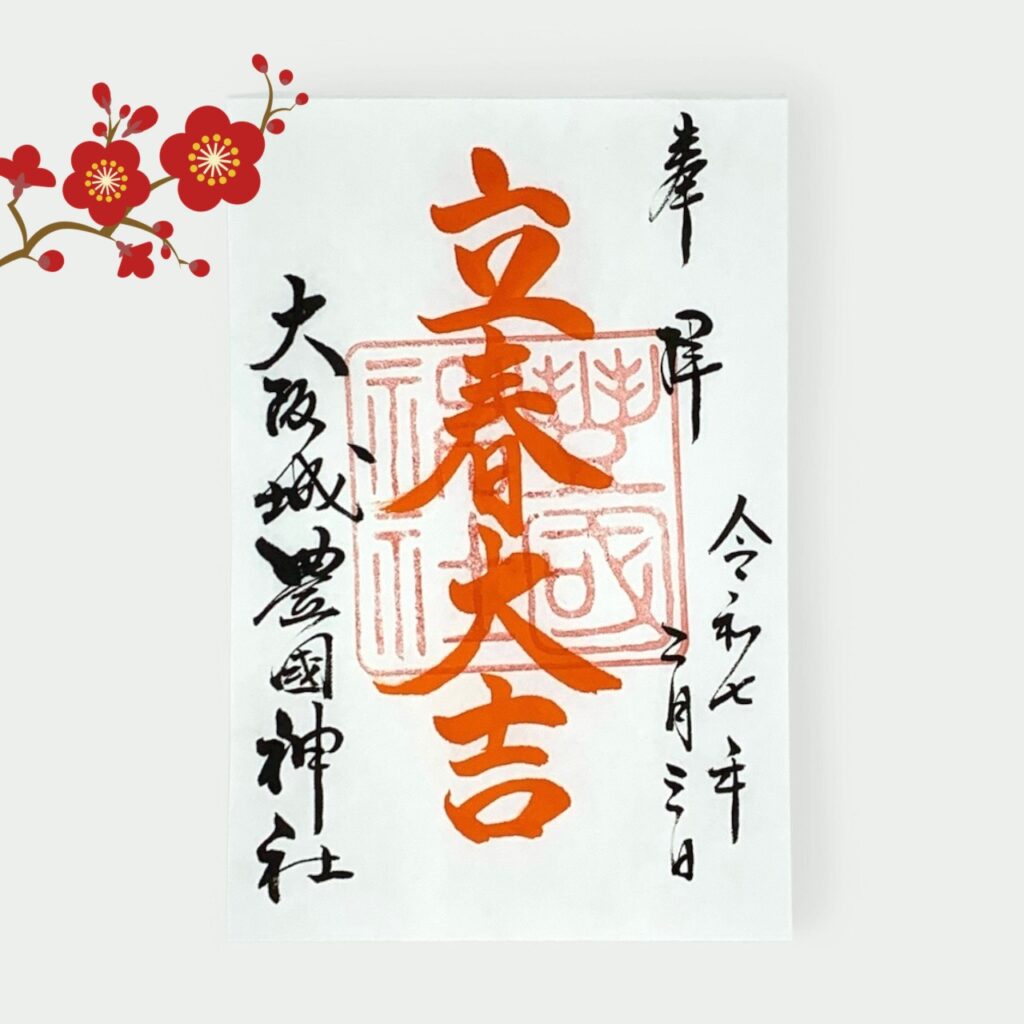 奉拝
令和七年
二月三日
立春大吉
豐國神社
大阪城豊國神社